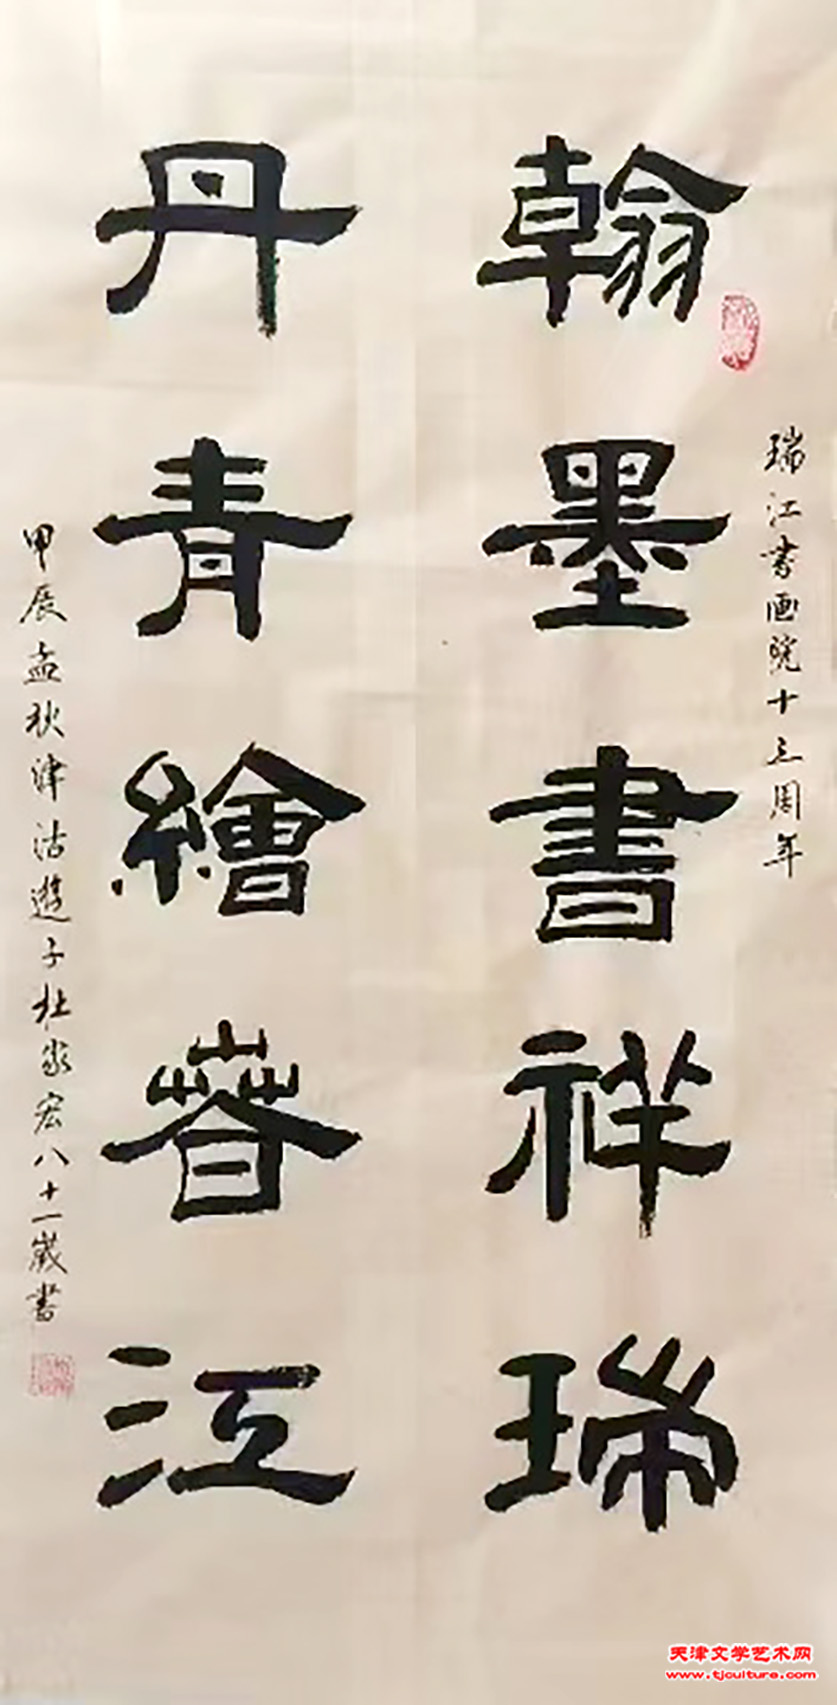 瑞江书画院十三周年
翰墨書祥瑞
丹青繪春江
甲辰孟秋津沽遊子杜家宏八十一歲書
天津文学艺术网
www.tjculture.com